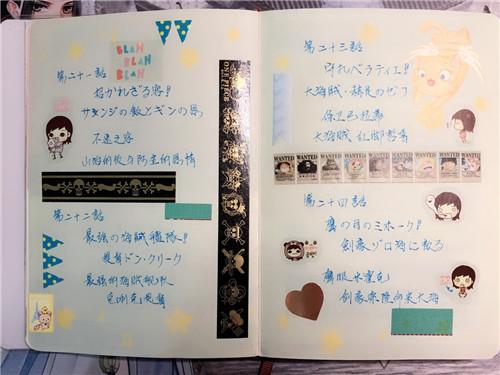 BLAH
BLAH
BLAH
第二十一話
招かれざる客!
サンジの飯とギンの恩
不速之客
山治的飯与阿金的恩情
第二十二話
最強の海賊艦隊!!
提督ドン・クリーク
最強的海賊艦隊
克利克提督
ONE PIECE
第二十三話
守れバラティエ!!
大海賊・赫足のゼフ
保卫巴拉蒂
大海賊 红脚哲普
WANTED WANTED WANTED WANTED WANTED WANTED WANTED WANTED
第二十四話
鷹の目のミホーク!!
剣豪ゾロ海に散る
鷹眼米霍克
剣豪索隆命丧大海